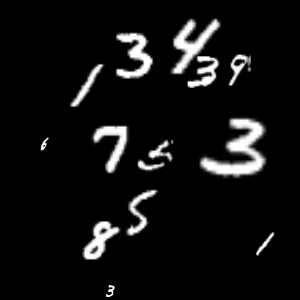 1 3 4 3 9
6 7 5 3
8 5 1
3